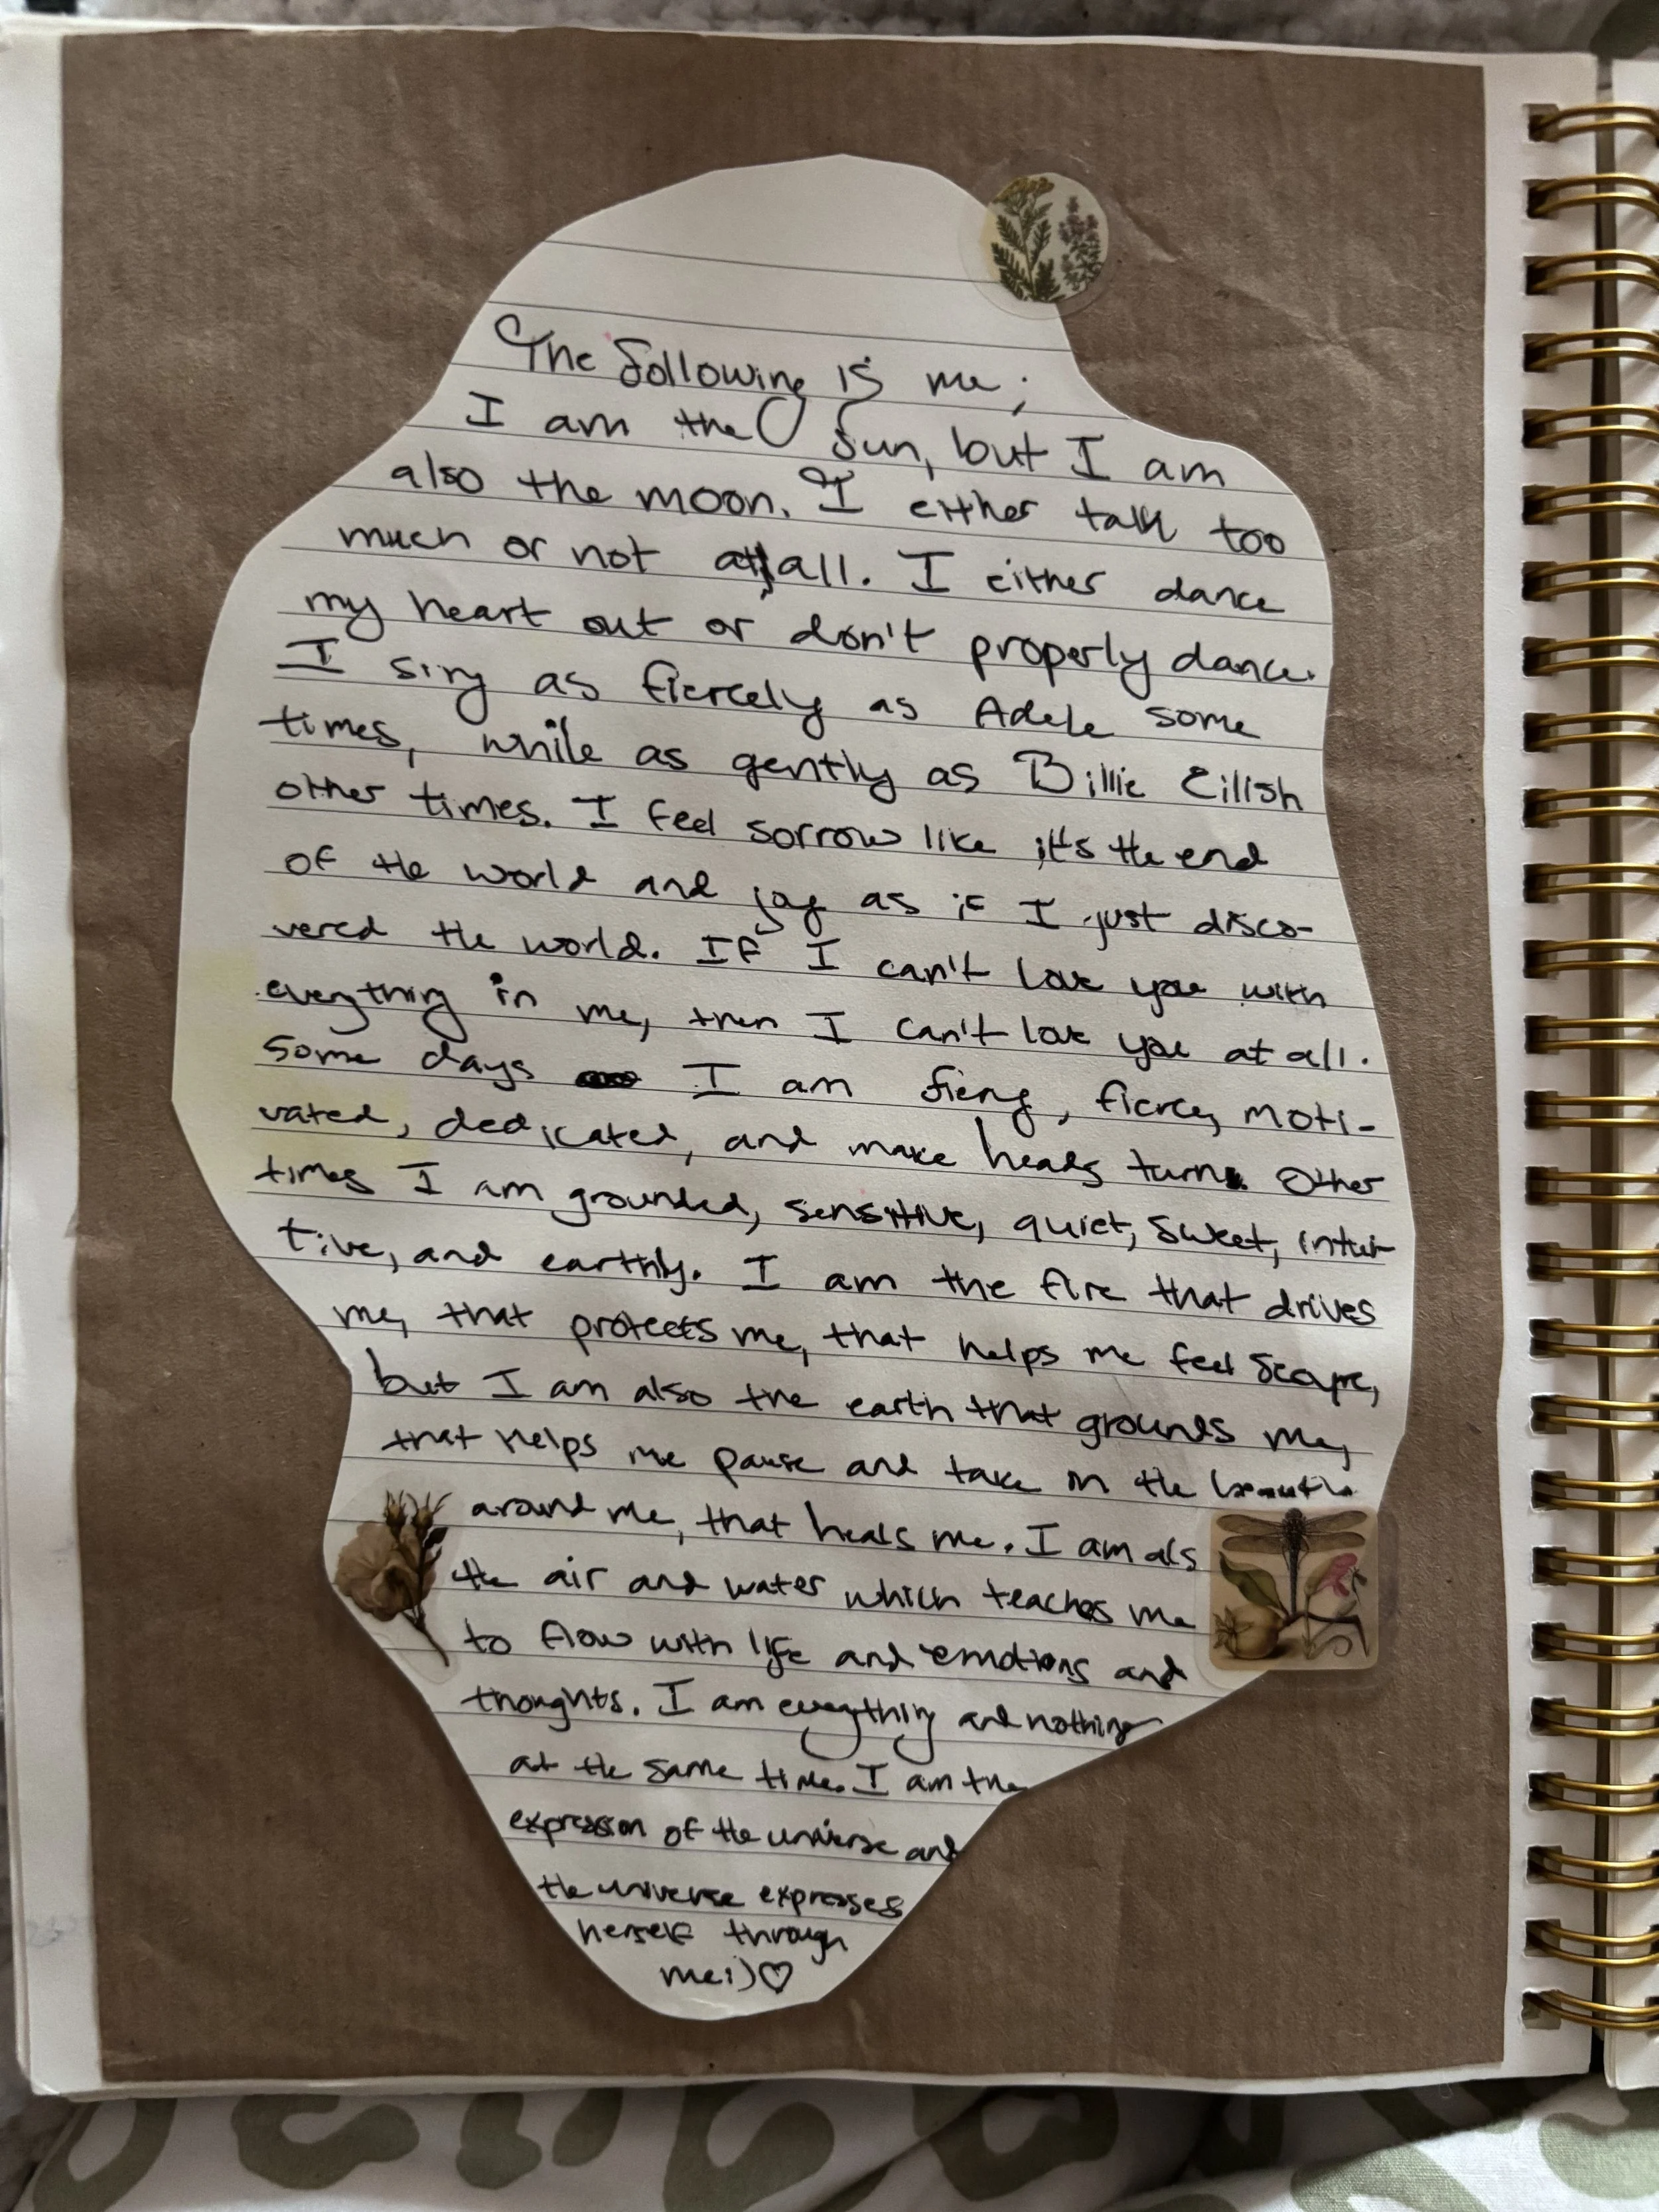 The following is me;
I am the sun, but I am
also the moon. I either talk too
much or not at all. I either dance
my heart out or don't properly dance.
I sing as fiercely as Adele some
times, while as gently as Billie Eilish
other times. I feel sorrow like it's the end
of the world and joy as if I just disco-
vered the world. If I can't love you with
everything in me, then I can't love you at all.
Some days I am fiery, fierce, moti-
vated, dedicated, and make heads turn. Other
times I am grounded, sensitive, quiet, sweet, intui-
tive, and earthly. I am the fire that drives
me, that protects me, that helps me feel
but I am also the earth that grounds me,
that helps me pause and take in the
around me, that heals me. I am als
the air and water which teaches me
to flow with life and emotions and
thoughts. I am everything and nothing
at the same time. I am the
expression of the universe and
the universe expresses
herself through
me:)♡